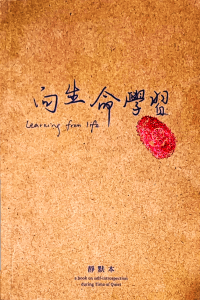 向生命學習
Learning from life
靜默本
a book on self-introspection
during time of Quiet